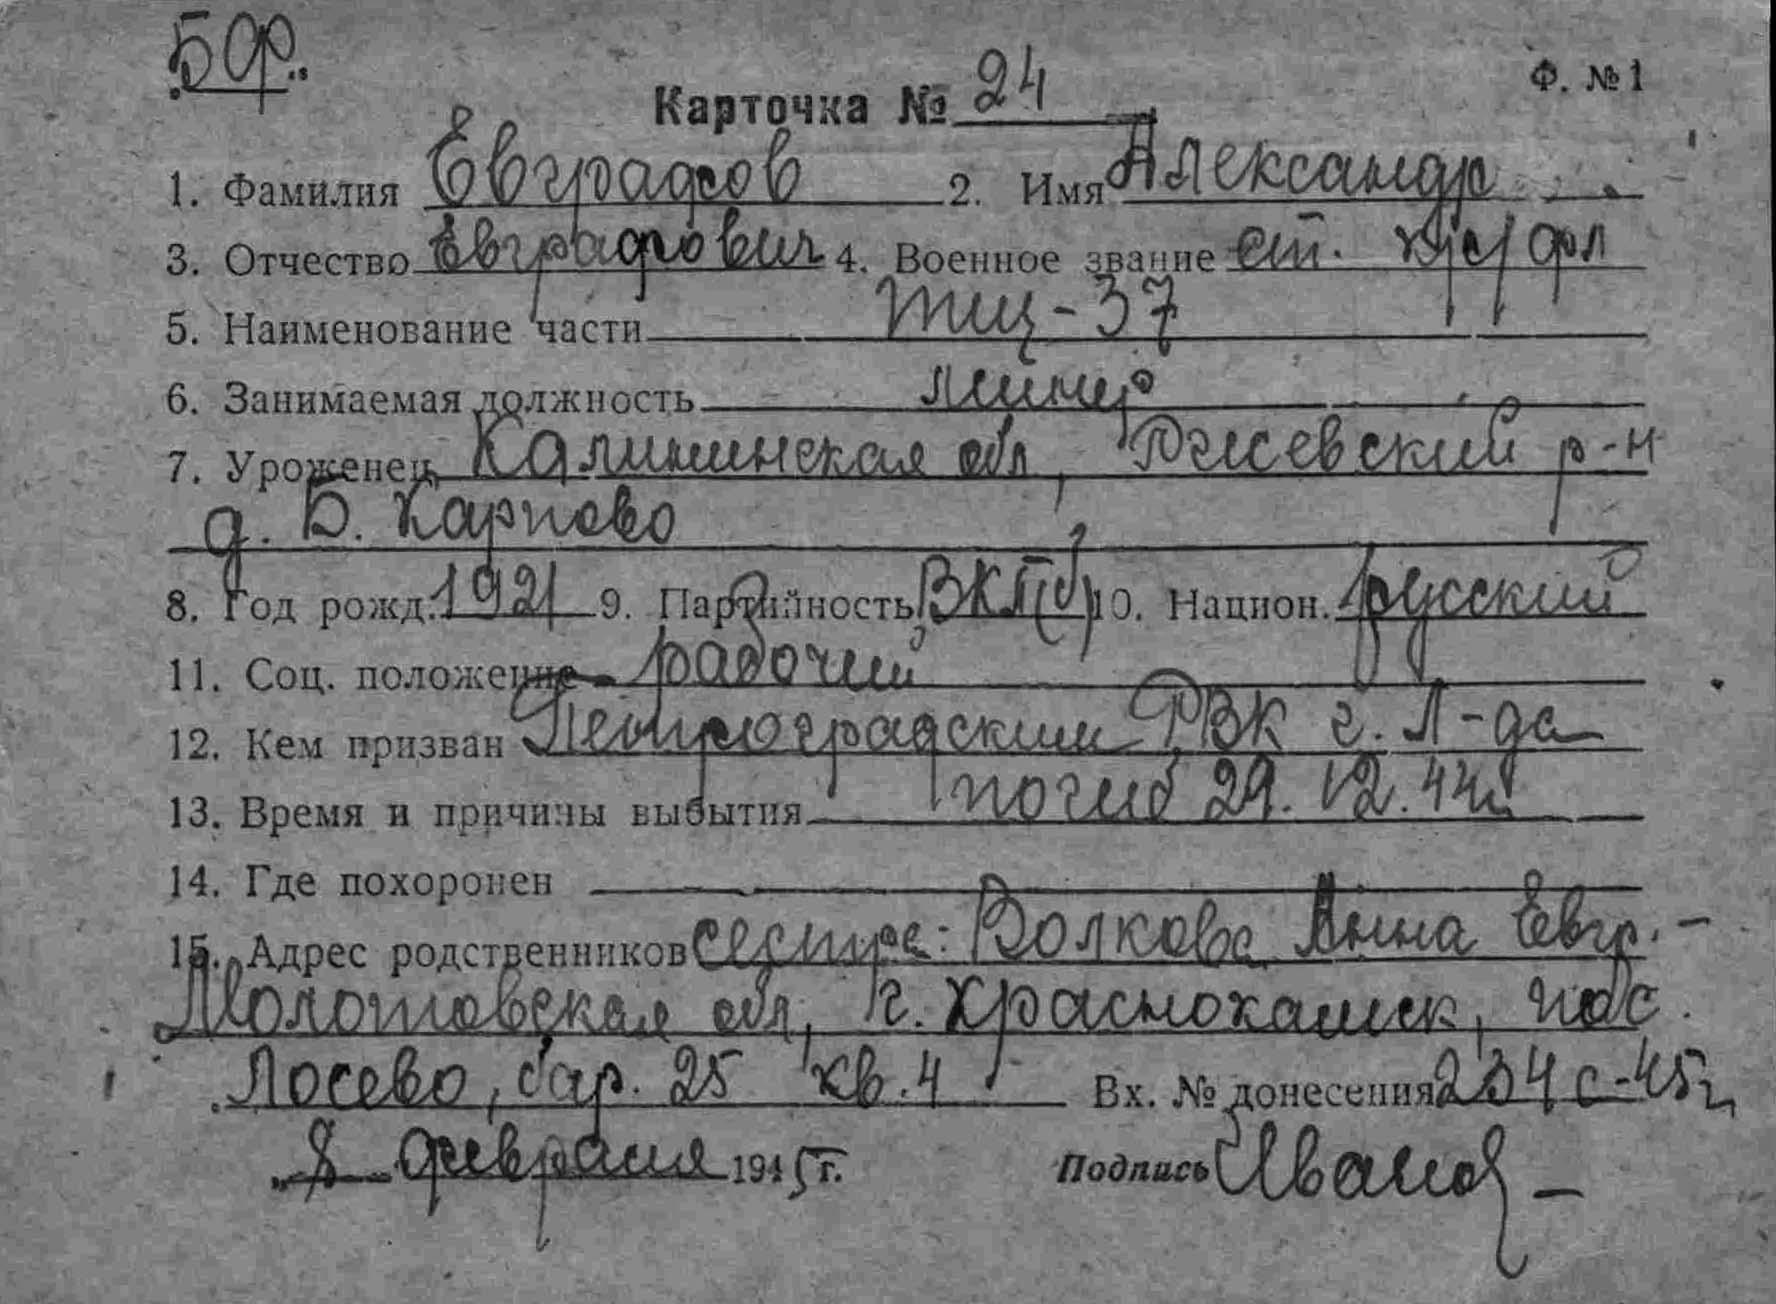 БФ.
Ф. №1
Карточка № 24
1. Фамилия Евграфов 2. Имя Александр
3. Отчество Евграфович 4. Военное звание ст. кр/фл
5. Наименование части ТЩ-37
6. Занимаемая должность минер
7. Уроженец Калининская обл, Ржевский р-н
д. Б. Карпово
8. Год рожд. 1921 9. Партийность ВКП(б) 10. Национ. русский
11. Соц. положение рабочий
12. Кем призван Петроградским РВК г. Л-да
13. Время и причины выбытия погиб 29.12.44г
14. Где похоронен
15. Адрес родственников сестра: Волкова Анна Евгр. -
Молотовская обл, г. Краснокамск, пос.
Лосево, бар. 25 кв. 4 Вх. № донесения 234с-45г
8 февраля 1945 г. Подпись Иванов